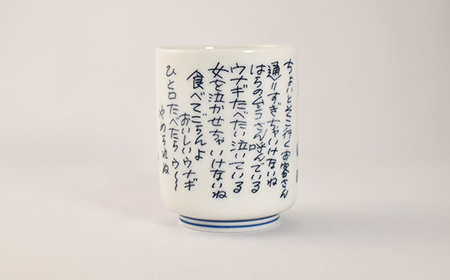 ちょいとそこ行くお客さん
通りすぎちゃいけないね
はちの子さん呼んでいる
ウナギたべたい泣いている
女を泣かせちゃいけないね
食べてごらんよ
おいしいウナギ
ひと口たべたらウ〜〜
やめられね